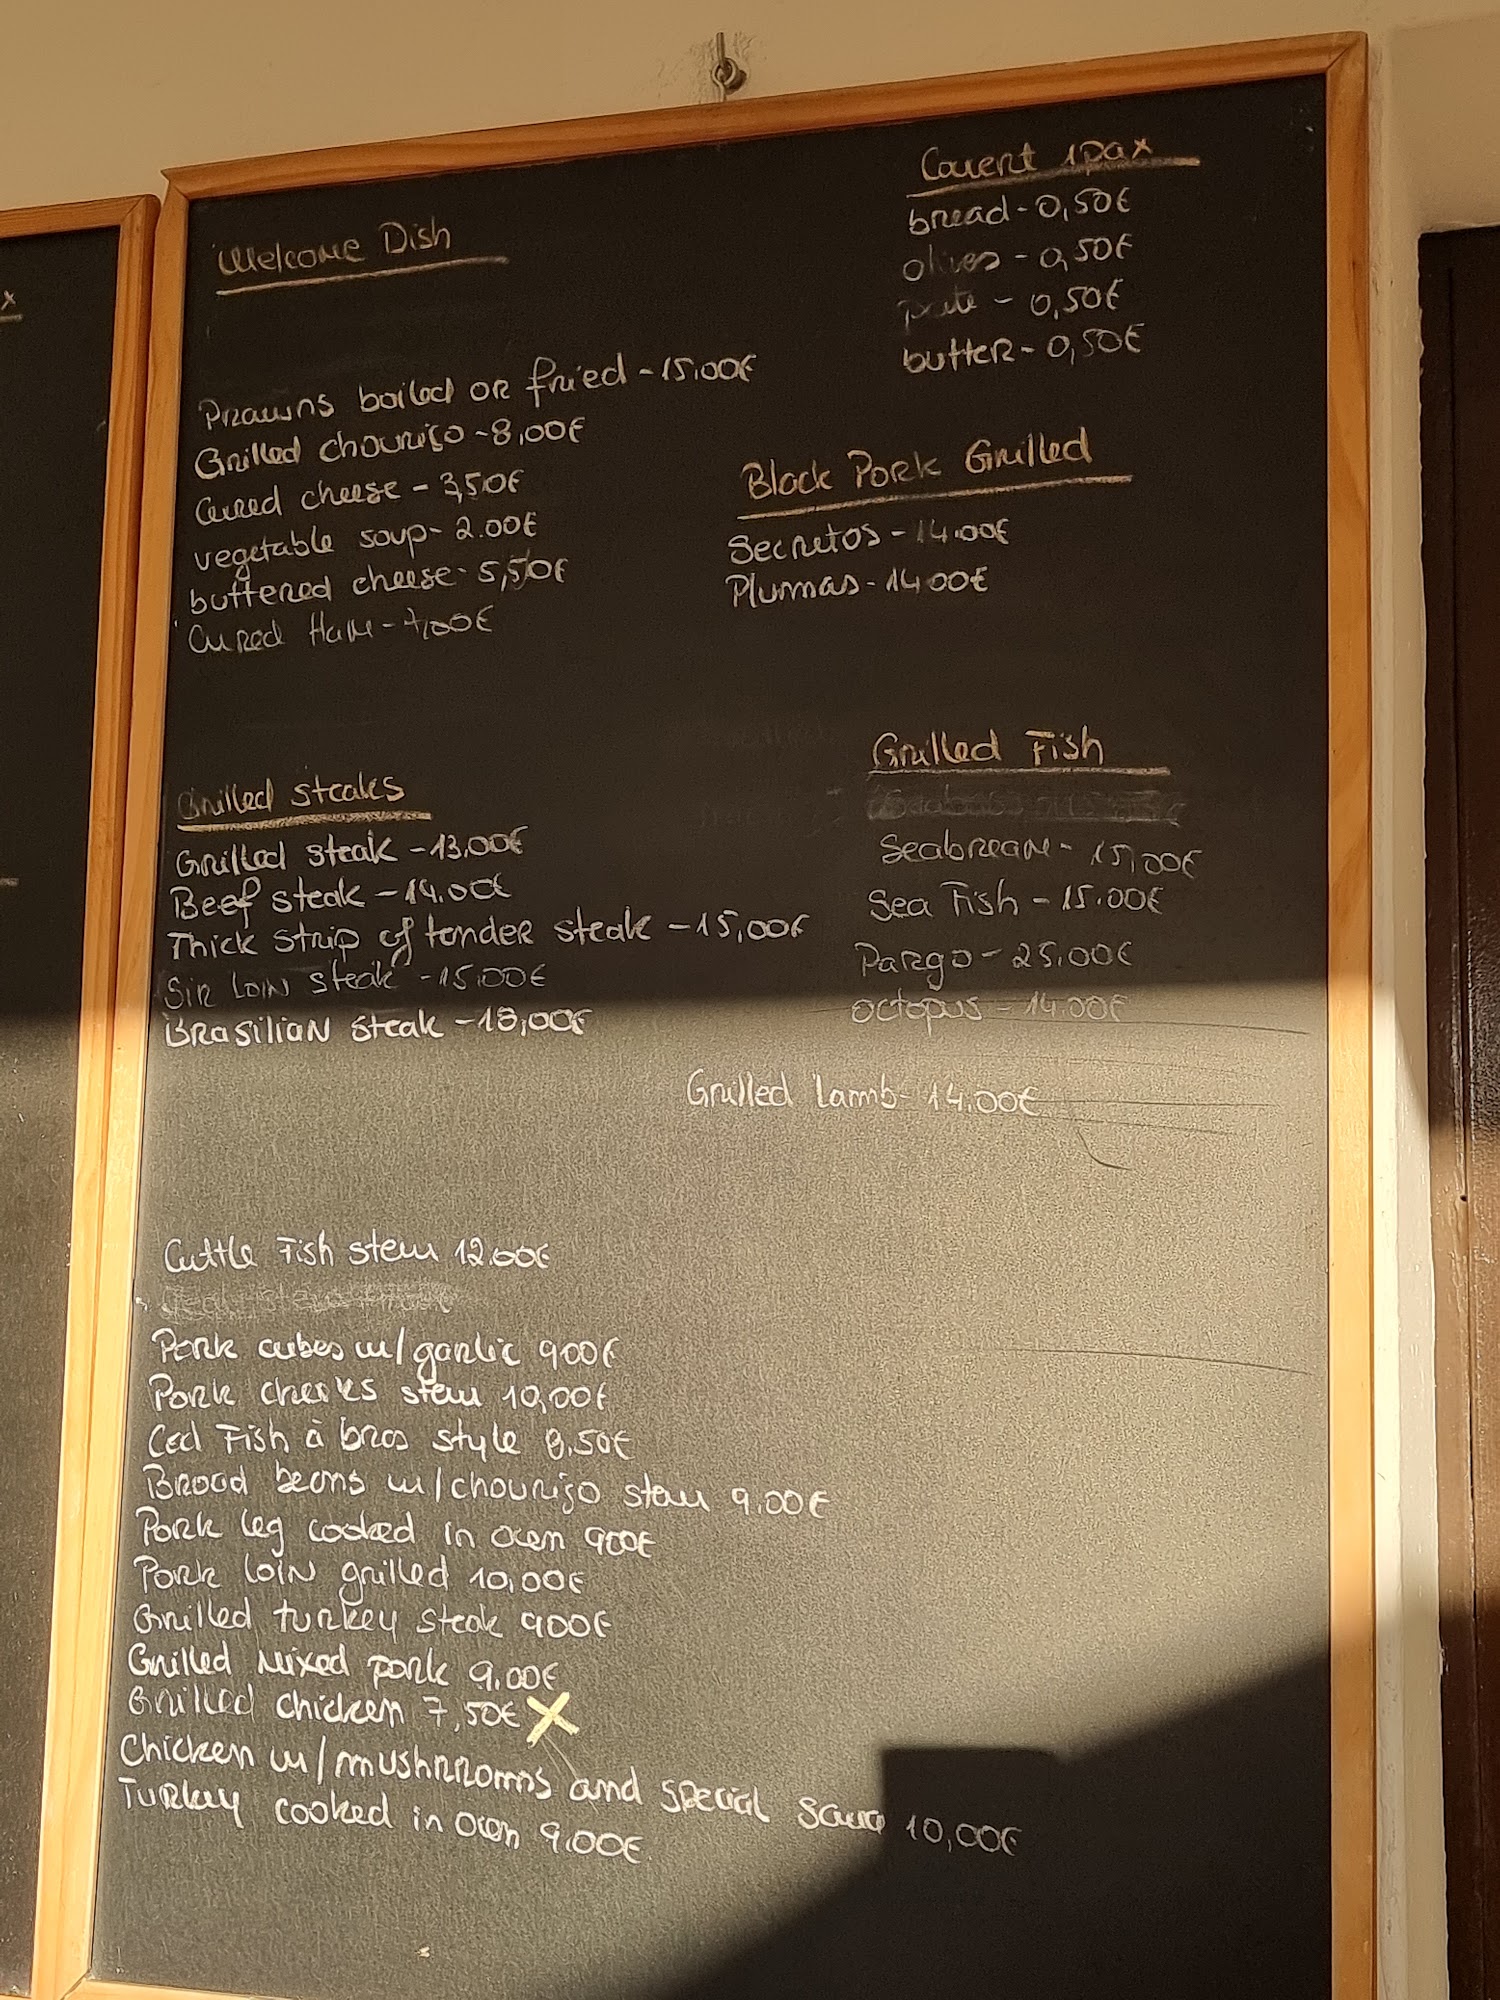 Welcome Dish
Prawns boiled or fried - 15,00€
Grilled chouriço - 8,00€
Cured cheese - 3,50€
vegetable soup - 2.00€
buttered cheese - 5,50€
Cured Ham - 7,00€
Couvert 1pax
bread - 0,50€
olives - 0,50€
pate - 0,50€
butter - 0,50€
Black Pork Grilled
Secretos - 14.00€
Plumas - 14.00€
Grilled steaks
Grilled steak - 13,00€
Beef steak - 14.00€
Thick strip of tender steak - 15,00€
Sir Loin steak - 15,00€
Brasilian steak - 18,00€
Grilled Fish
Seabream - 15,00€
Sea Fish - 15.00€
Pargo - 25.00€
octopus - 14.00€
Grilled Lamb - 14.00€
Cuttle Fish stew 12.00€
Pork cubes w/ garlic 9.00€
Pork cheeks stew 10,00€
Cod Fish à bras style 8,50€
Broad beans w/ chouriço stew 9.00€
Pork leg cooked in oven 9.00€
Pork Loin grilled 10,00€
Grilled turkey steak 9.00€
Grilled mixed pork 9.00€
Grilled chicken 7,50€ X
Chicken w/ mushrroms and special sauce 10,00€
Turkey cooked in oven 9.00€